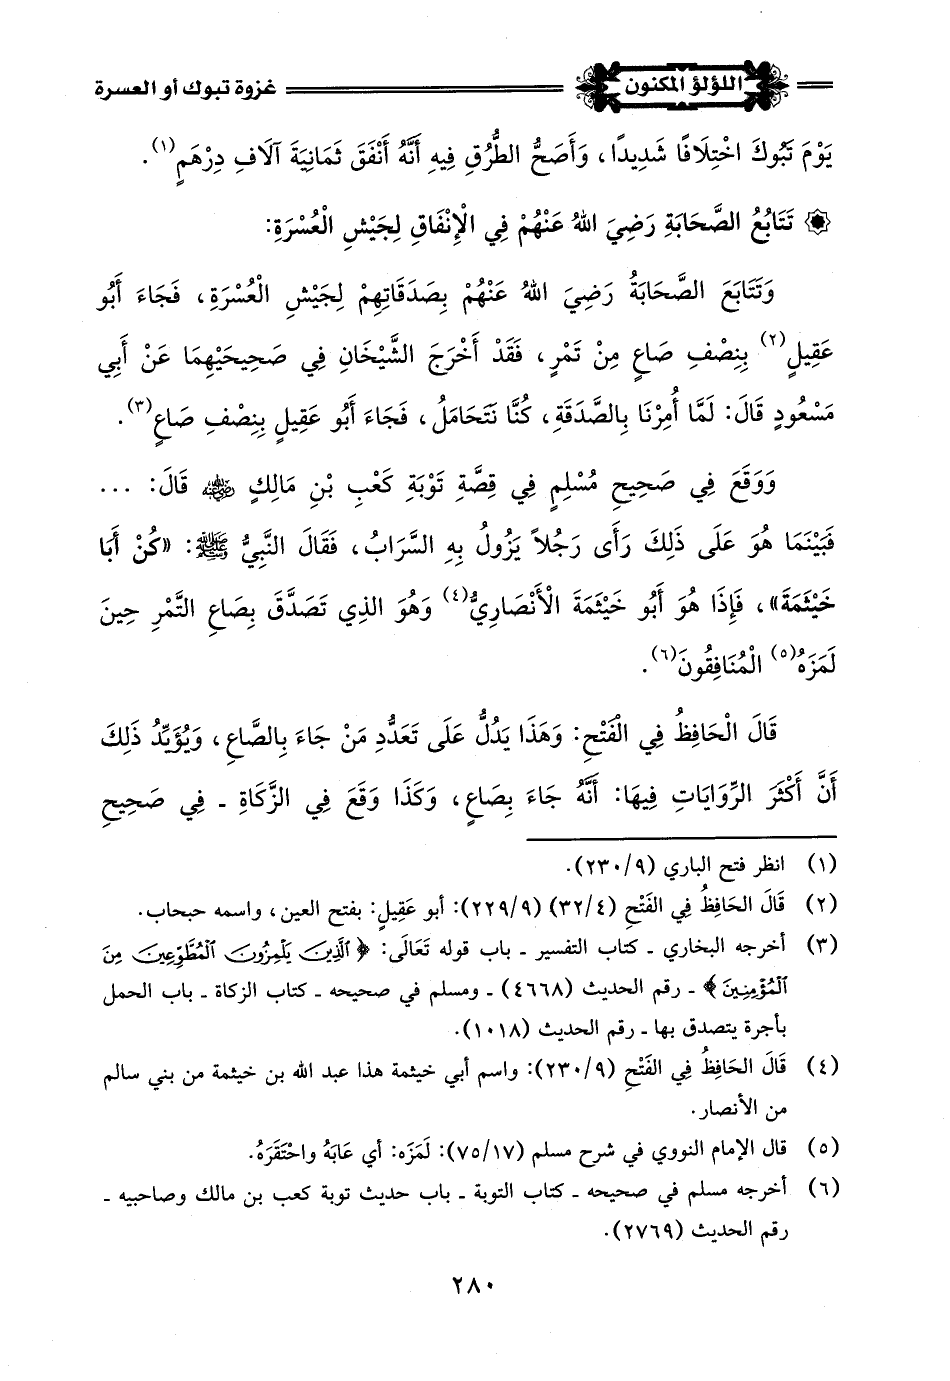 اللؤلؤ المكنون
غزوة تبوك أو العسرة
يَوْمَ تَبُوكَ اخْتِلَافًا شَدِيدًا، وَأَصَحُّ الطُّرُقِ فِيهِ أَنَّهُ أَنْفَقَ ثَمَانِيَةَ آلَافِ دِرْهَمٍ(١).
تَتَابُعُ الصَّحَابَةِ رَضِيَ اللهُ عَنْهُمْ فِي الْإِنْفَاقِ لِجَيْشِ الْعُسْرَةِ:
وَتَتَابَعَ الصَّحَابَةُ رَضِيَ اللهُ عَنْهُمْ بِصَدَقَاتِهِمْ لِجَيْشِ الْعُسْرَةِ، فَجَاءَ أَبُو
عَقِيلٍ(٢) بِنِصْفِ صَاعٍ مِنْ تَمْرٍ، فَقَدْ أَخْرَجَ الشَّيْخَانِ فِي صَحِيحَيْهِمَا عَنْ أَبِي
مَسْعُودٍ قَالَ: لَمَّا أُمِرْنَا بِالصَّدَقَةِ، كُنَّا نَتَحَامَلُ، فَجَاءَ أَبُو عَقِيلٍ بِنِصْفِ صَاعٍ(٣).
وَوَقَعَ فِي صَحِيحِ مُسْلِمٍ فِي قِصَّةِ تَوْبَةِ كَعْبِ بْنِ مَالِكٍ رضي الله عنه قَالَ: ...
فَبَيْنَمَا هُوَ عَلَى ذَلِكَ رَأَى رَجُلاً يَزُولُ بِهِ السَّرَابُ، فَقَالَ النَّبِيُّ ﷺ: «كُنْ أَبَا
خَيْثَمَةَ»، فَإِذَا هُوَ أَبُو خَيْثَمَةَ الْأَنْصَارِيُّ(٤) وَهُوَ الذِي تَصَدَّقَ بِصَاعِ التَّمْرِ حِينَ
لَمَزَهُ(٥) الْمُنَافِقُونَ(٦).
قَالَ الْحَافِظُ فِي الْفَتْحِ: وَهَذَا يَدُلُّ عَلَى تَعَدُّدِ مَنْ جَاءَ بِالصَّاعِ، وَيُؤَيِّدُ ذَلِكَ
أَنَّ أَكْثَرَ الرِّوَايَاتِ فِيهَا: أَنَّهُ جَاءَ بِصَاعٍ، وَكَذَا وَقَعَ فِي الزَّكَاةِ ـ فِي صَحِيحِ
(١) انظر فتح الباري (٩/٢٣٠).
(٢) قَالَ الحَافِظُ فِي الفَتْحِ (٤/٣٢) (٩/٢٢٩): أبو عَقِيل: بفتح العين، واسمه حبحاب.
(٣) أخرجه البخاري ـ كتاب التفسير ـ باب قوله تَعَالَى: ﴿ٱلَّذِينَ يَلْمِزُونَ ٱلْمُطَّوِّعِينَ مِنَ
ٱلْمُؤْمِنِينَ﴾ ـ رقم الحديث (٤٦٦٨) ـ ومسلم في صحيحه ـ كتاب الزكاة ـ باب الحمل
بأجرة يتصدق بها ـ رقم الحديث (١٠١٨).
(٤) قَالَ الحَافِظُ فِي الفَتْحِ (٩/٢٣٠): واسم أبي خيثمة هذا عبد الله بن خيثمة من بني سالم
من الأنصار.
(٥) قال الإمام النووي في شرح مسلم (١٧/٧٥): لَمَزَه: أي عَابَهُ واحْتَقَرَهُ.
(٦) أخرجه مسلم في صحيحه ـ كتاب التوبة ـ باب حديث توبة كعب بن مالك وصاحبيه ـ
رقم الحديث (٢٧٦٩).
٢٨٠